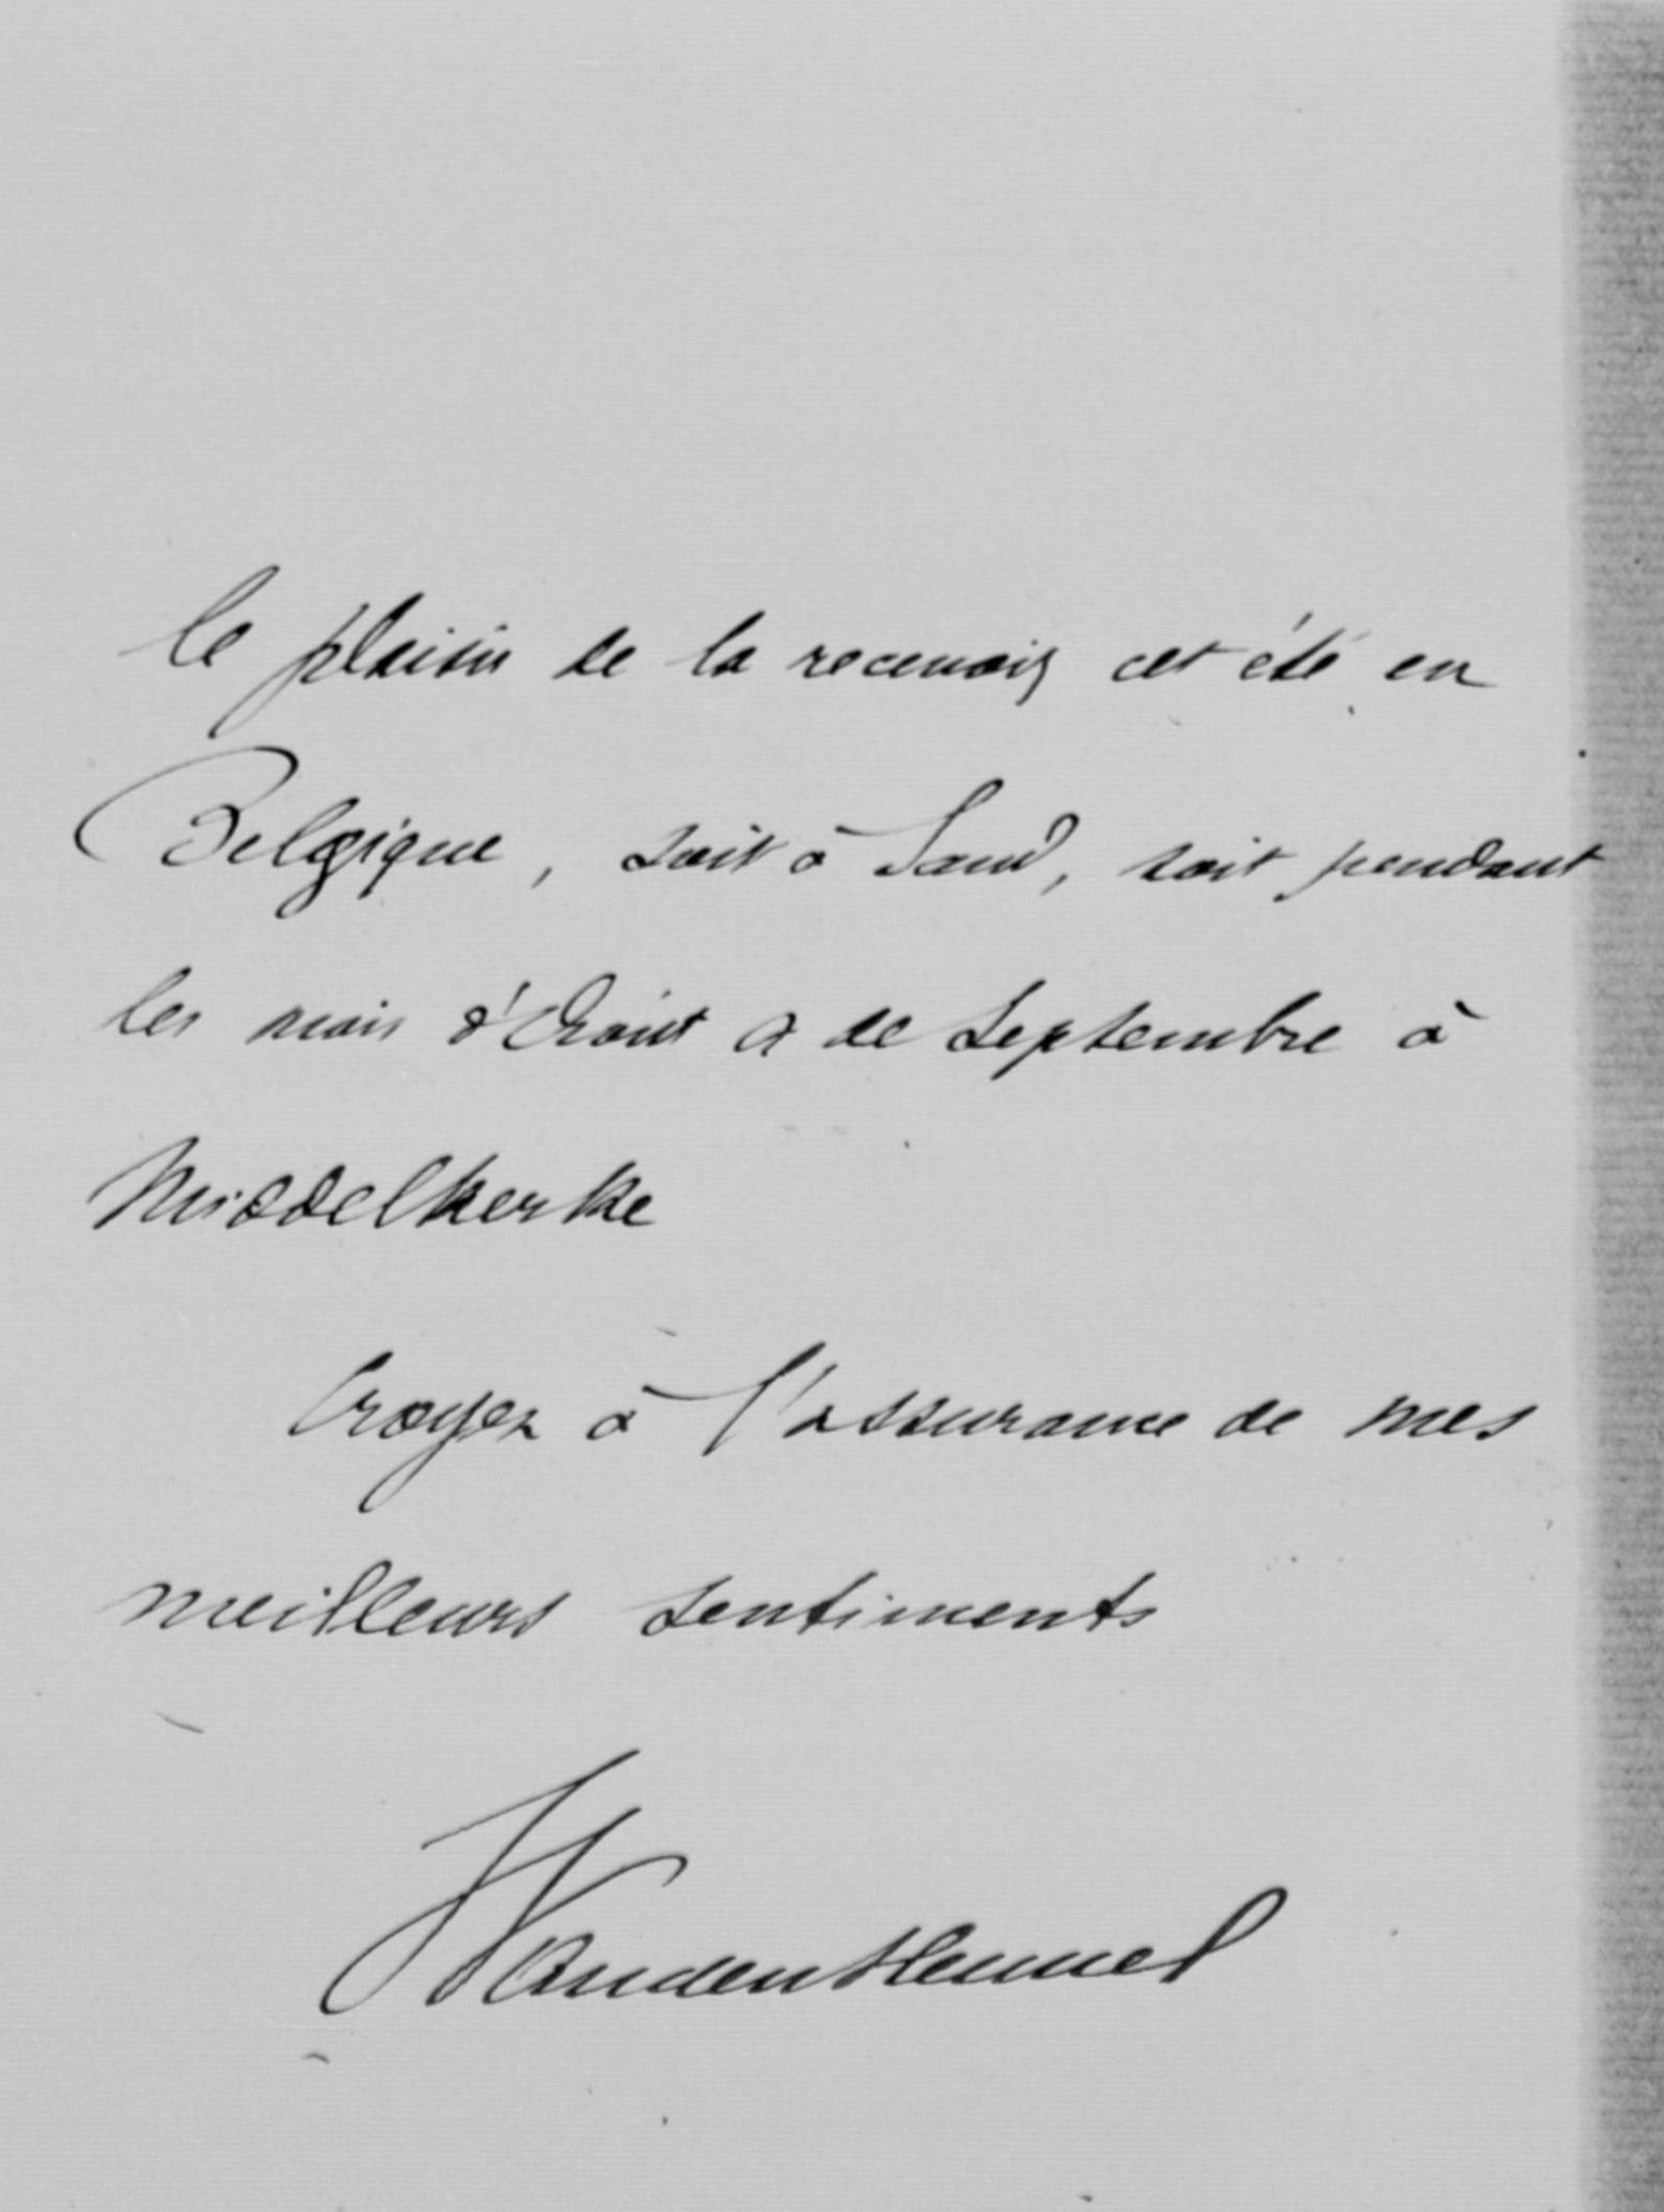 le plaisir de la recevoir cet été en
Belgique, soit à Gand, soit pendant
les mois d'Août & de Septembre à
Middelkerke
Croyez à l'assurance de mes
meilleurs sentiments